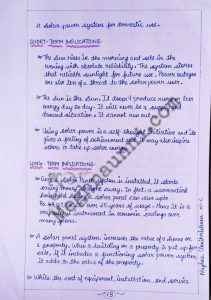 a solar power system for domestic use.
SHORT-TERM IMPLICATIONS:
The sun rises in the morning and sets in the
evening with absolute reliability. The system stores
that reliable sunlight for future use. Power outages
are also less of a threat to the source.
The sun is the Sun. It doesn't produce more or less
energy day to day. It will never be a supply and
demand situation. It cannot run out
Using solar power is a self-starting initiative and it's
give a feeling of achievement and it may also inspire
others to take up solar energy.
LONG-TERM IMPLICATIONS:
Once a solar power system is installed, it starts
saving money right away. In fact, a
household with a solar panel can save upto
over 25 years of usage. Hence it is a
very instrument in economic savings over
many years
A solar panel system increases the value of a home or
a property. When a building or a property is put up for
sale, if it includes a functioning solar power system,
it adds to the value of the property.
While the cost of equipment, installation, and service